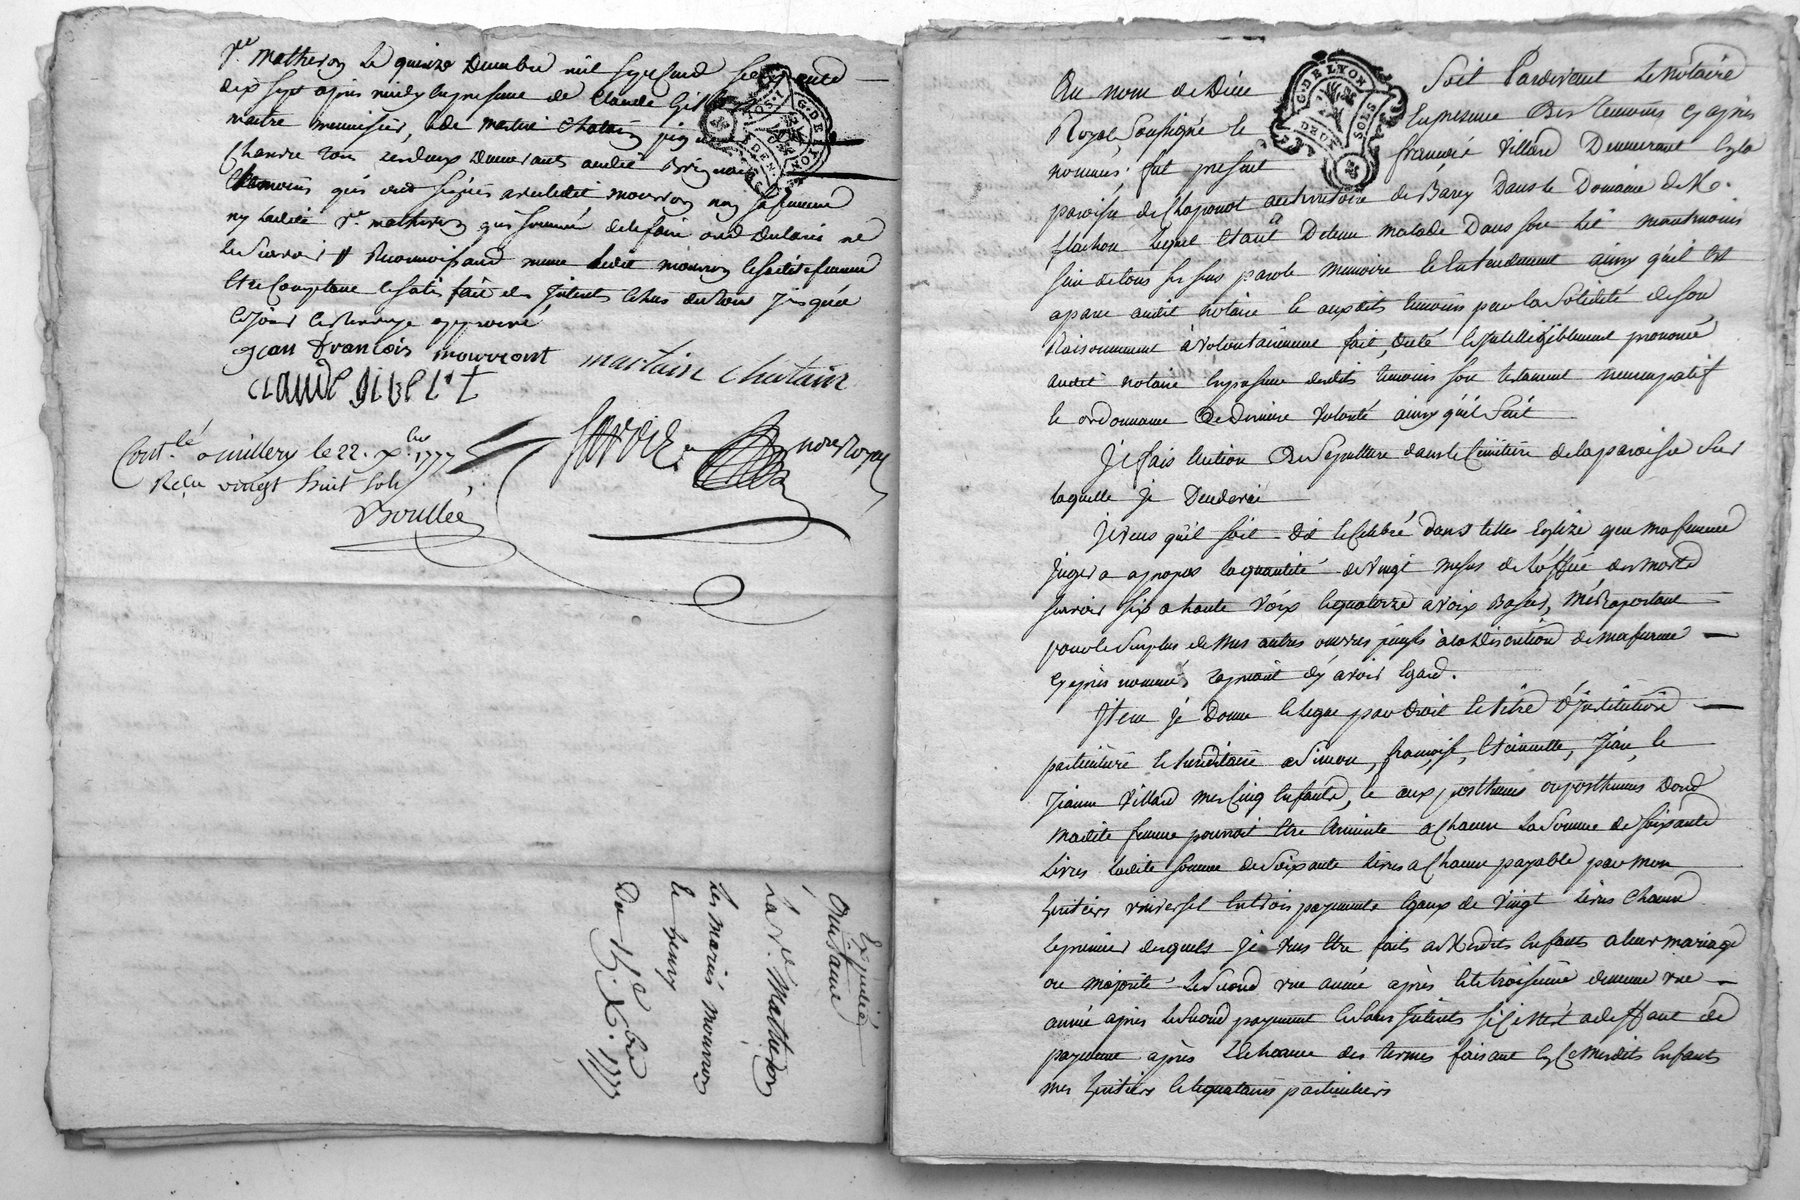 Ve. Matheron le quinze decembre mil sept cent soixante
dix sept après midy en presence de Claude Gibert
maitre menuisier, & de martin Chatain
demeurants audit Brignais
temoins qui ont signés avec ledit mourron non sa femme
ny ladite Ve. matheron qui sommée de le faire ont declaré ne
le sçavoir // Reconnoissant meme ledit mourron & sadite femme
etre comptant & satisfait des Interets & du tout jusqu'a
ce jour
jean François mourront martain chatain
claude gibert
not re Royal
Cont.lé a millery le 22. Xbre 1777
Reçu vingt huit sols
Boullée
G. DE LYON
Expedié
Quittance
La ve. Matheron
Les mariés mourron
Du 15 Xbre 1777
Au nom de Dieu Soit Pardevant Le notaire
Royal Soussigné & En presence Des temoins cy après
nommés fut present françois Villard Demeurant En la
paroisse de Chaponost au territoire de Barey Dans le Domaine de Mr.
flachon lequel Etant Detenu malade Dans son lit neantmoins
sain de tous ses sens parole memoire & Entendement ainsy qu'il est
aparu audit notaire & auxdits temoins par la Solidité de son
Raisonnement à volontairement fait, dicté & intelligiblement prononcé
audit notaire En presence desdits temoins son testament nuncupatif
& ordonnance De Derniere volonté ainsy qu'il Suit
Je fais Election De Sepulture dans le Cimetiere de la paroisse Sur
laquelle je Decederai
Je veus qu'il soit Dit & Celebré dans telles Eglize que ma femme
jugera apropos la quantité de vingt messes de l'office des morts
sçavoir six a haute voix & quatorze a voix Basses, m'en Raportant
pour le Surplus de mes autres œuvres pieuses à la Discretion de ma femme
cy après nommé, la priant d'y avoir Egard.
Item je Donne & legue par droit & titre D'institution
particuliere & hereditaire a Simon, françoise, Etiennette, Jean, &
Jeanne Villard mes Cinq Enfants, & aux posthume ou posthumes Dont
madite femme pourroit Etre Enceinte a Chacun La Somme de Soixante
Livres Ladite Somme de Soixante livres a Chacun payable par mon
heritiers universel En trois payements Egaux de vingt livres Chacun
le premier desquels je veus Etre fait a mesdits Enfants a leur mariage
ou majorité Le Second une année après & le troisieme dememe une
année après le second payement & sans Interets Si Ce n'est a deffaut de
payement après L'Echeance des termes faisant En Ce mesdits Enfants
mes heritiers & legataires particuliers